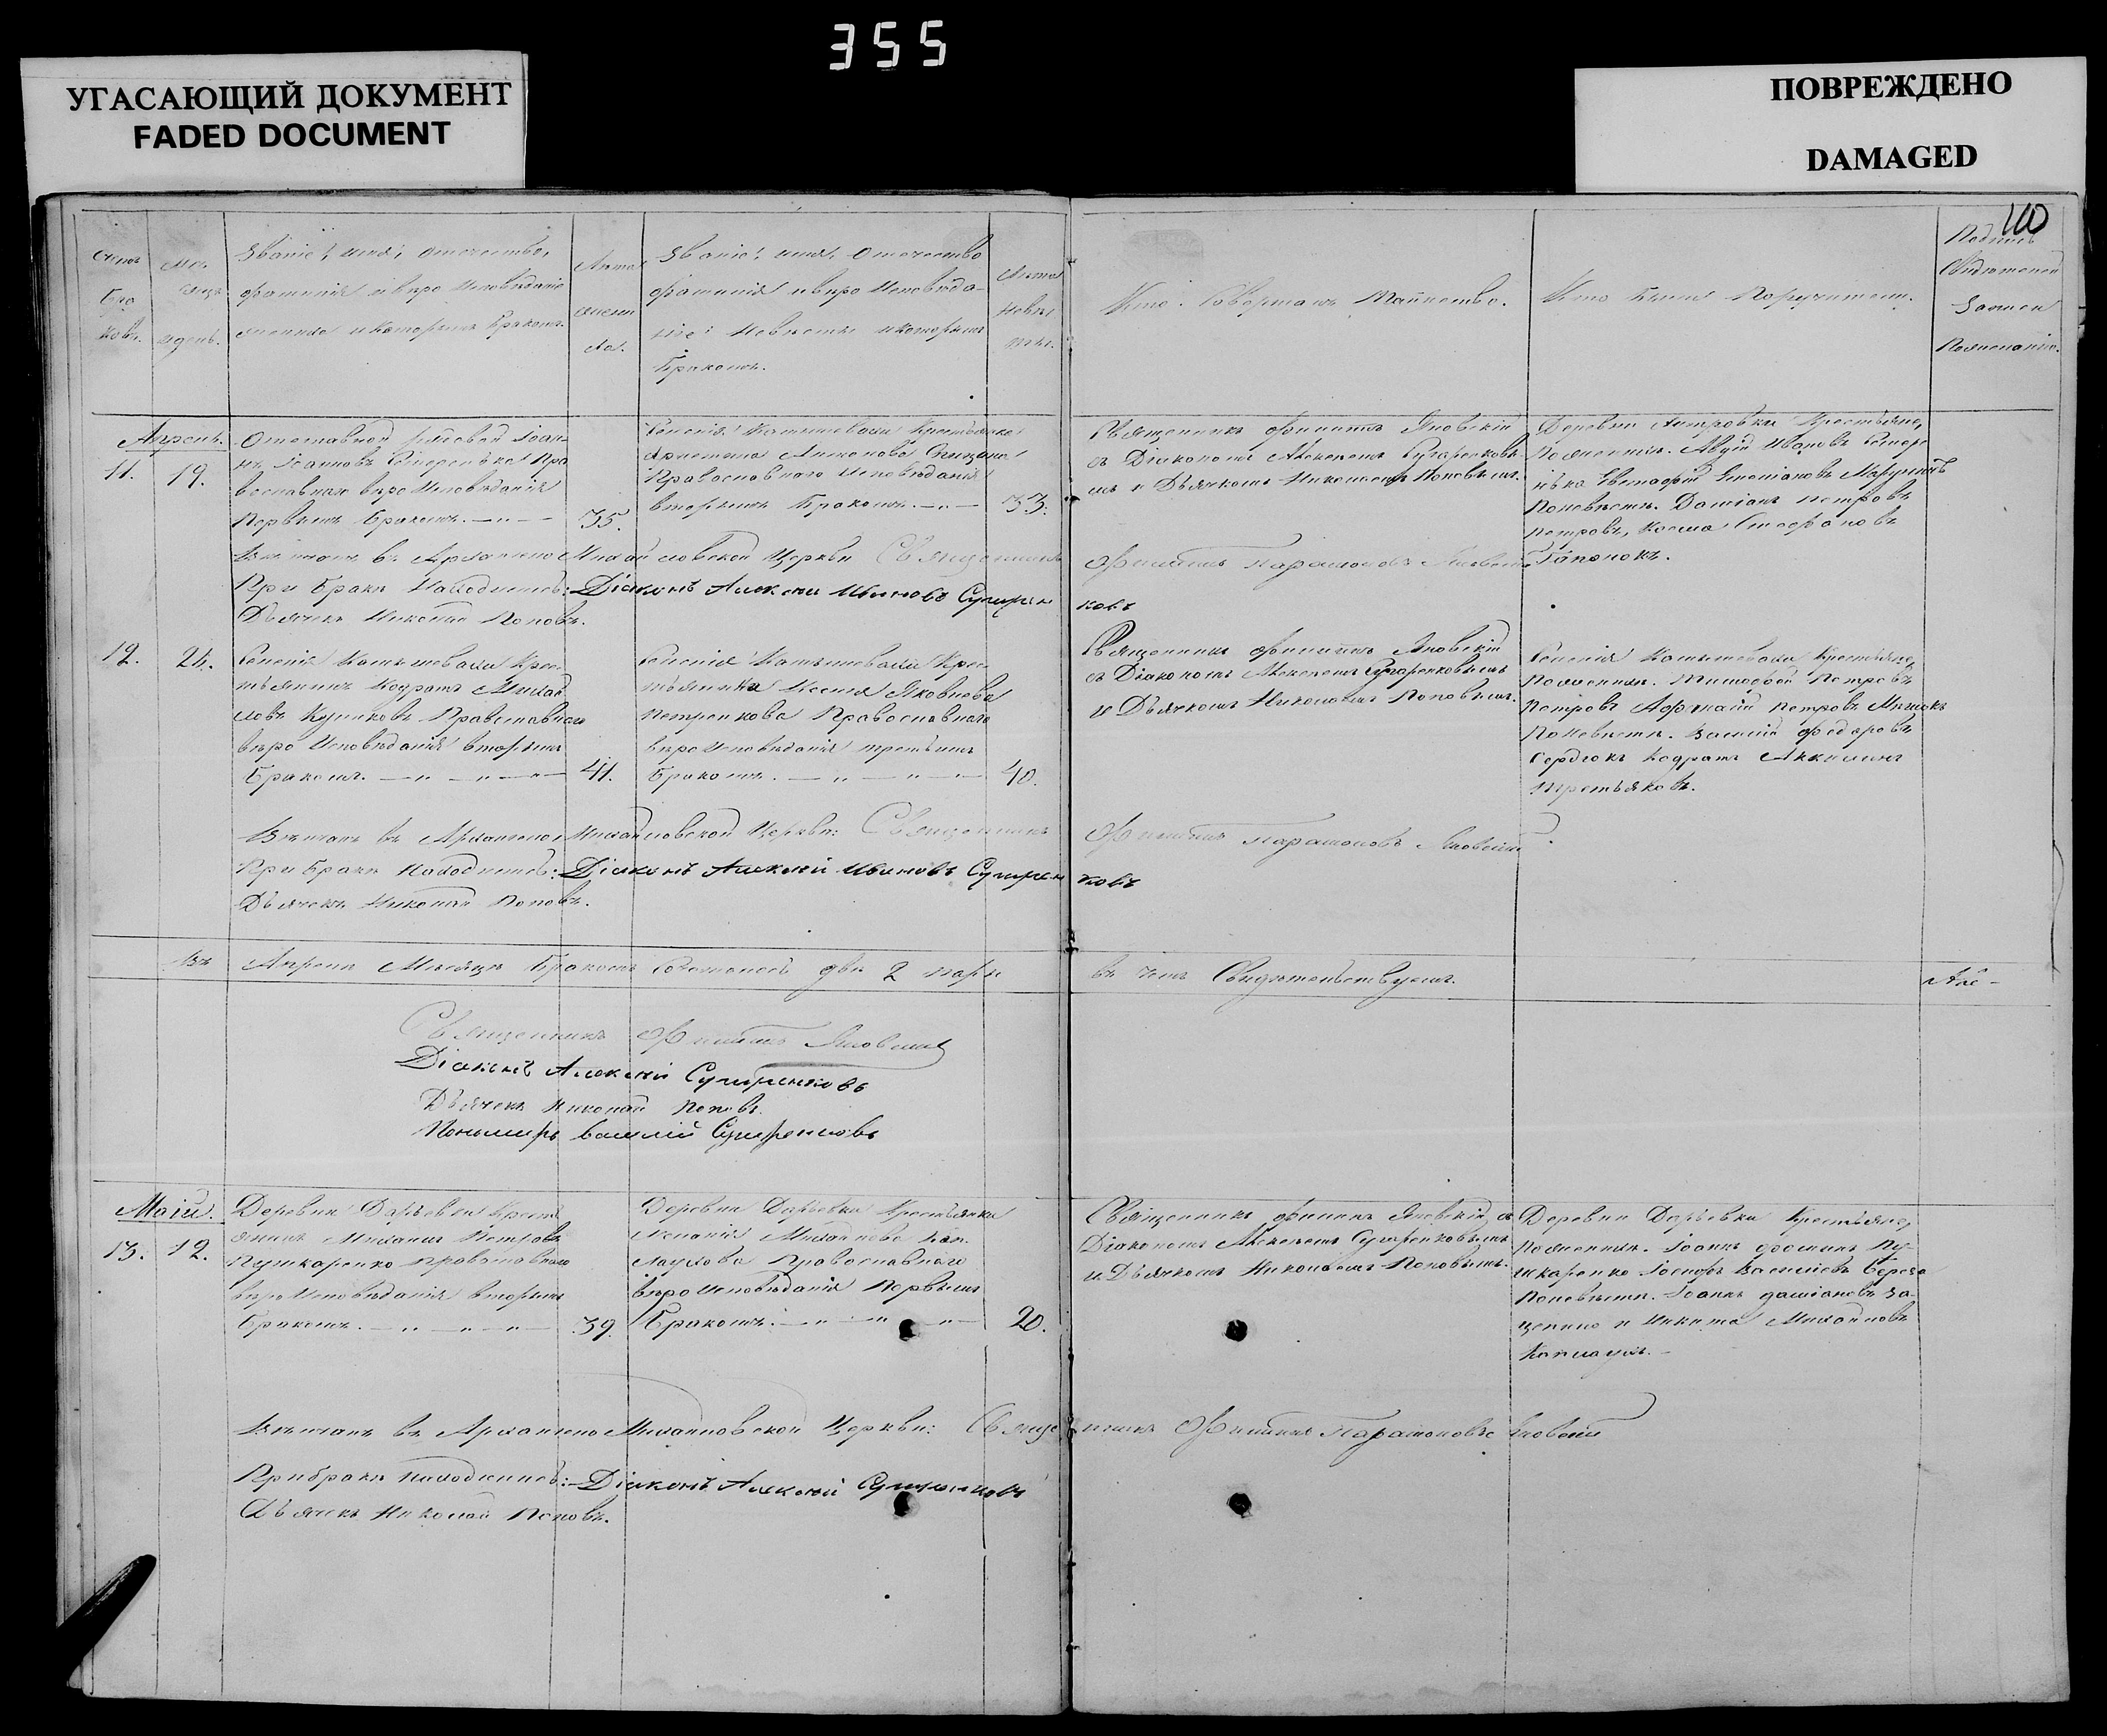 355
УГАСАЮЩИЙ ДОКУМЕНТ
FADED DOCUMENT
ПОВРЕЖДЕНО
DAMAGED
100
Счетъ бра ковъ.
Мѣ сяцъ и день.
Званіе, имя, отечество,
фамилія и вѣро исповѣданіе
жениха и которымъ бракомъ.
Лѣта жени ха.
Званіе, имя, отечество
фамилія и вѣро исповѣда-
ніе невѣсты и которымъ
бракомъ.
Лѣта невѣс ты.
Кто совершалъ таинство.
Кто были поручители.
Подпись
свидѣтелей
записи
по желанію.
Апрель.
11. 19.
Отставной рядовой Іоан-
нъ Іоанновъ
вославнаго вѣро исповѣданія
первымъ бракомъ. 35.
Селенія Камышевахи крестьянка
Православнаго исповѣданія
вторымъ бракомъ. 33.
Священникъ Филиппъ Яновскій
съ Діакономъ Алексеемъ Сухаренковы
мъ и Дьячкомъ Николаемъ Поповымъ.
Деревни Петровки крестьяне,
по женихѣ. Ивановъ
по невѣстѣ. Даміанъ Петровъ
Петровъ, Косма Стефановъ
Гапонокъ.
Вѣнчанъ въ Архангело Михайловской Церкви Священникъ Филиппъ Парамоновъ Яновскій
При бракѣ находились: Діаконъ Алексей Ивановъ Сухаренковъ
Дьячекъ Николай Поповъ.
12. 24.
Селенія Камышевахи крес-
тьянинъ Кодратъ Михай
ловъ Куликовъ Православнаго
вѣро исповѣданія вторымъ
бракомъ. 41.
Селенія Камышевахи крес-
тьянка Ксенія Яковлева
Петренкова Православнаго
вѣро исповѣданія третьимъ
бракомъ. 40.
Священникъ Филиппъ Яновскій
съ Діакономъ Алексеемъ Сухаренковымъ
и Дьячкомъ Николаемъ Поповымъ.
Селенія Камышевахи крестьяне,
по женихѣ. Тимофей Петровъ
Петровъ Афанасій Петровъ
по невѣстѣ. Василій Федоровъ
Сердюкъ Кодратъ
Третьяковъ.
Вѣнчанъ въ Архангело Михайловской Церкви: Священникъ Филиппъ Парамоновъ Яновскій
При бракѣ находились: Діаконъ Алексей Ивановъ Сухаренковъ
Дьячекъ Николай Поповъ.
Въ Апрелѣ месяцѣ бракомъ сочетались двѣ 2 пары въ чемъ свидѣтельствуемъ.
Священникъ Филиппъ Яновскій
Діаконъ Алексей Сухаренковъ
Дьячекъ Николай Поповъ.
Пономарь Василій Сухаренковъ
Маій.
13. 12.
Деревни Дарьевки крест
янинъ Михаилъ Петровъ
Пушкаренко православнаго
вѣро исповѣданія вторымъ
бракомъ. 39.
Деревни Дарьевки крестьянка
Меланія Михайлова Кап-
лаухова Православнаго
вѣро исповѣданія первымъ
бракомъ. 20.
Священникъ Филиппъ Яновскій съ
Діакономъ Алексеемъ Сухаренковымъ
и Дьячкомъ Николаемъ Поповымъ.
Деревни Дарьевки крестьяне,
по женихѣ. Іоаннъ Фоминъ Пу-
шкаренко Іосифъ Василіевъ Береза
по невѣстѣ. Іоаннъ Даміановъ За-
цепино и Никита Михайловъ
Каплаухъ.
Вѣнчанъ въ Архангело Михайловской Церкви: Священникъ Филиппъ Парамоновъ Яновскій
При бракѣ находились: Діаконъ Алексей Сухаренковъ
Дьячекъ Николай Поповъ.